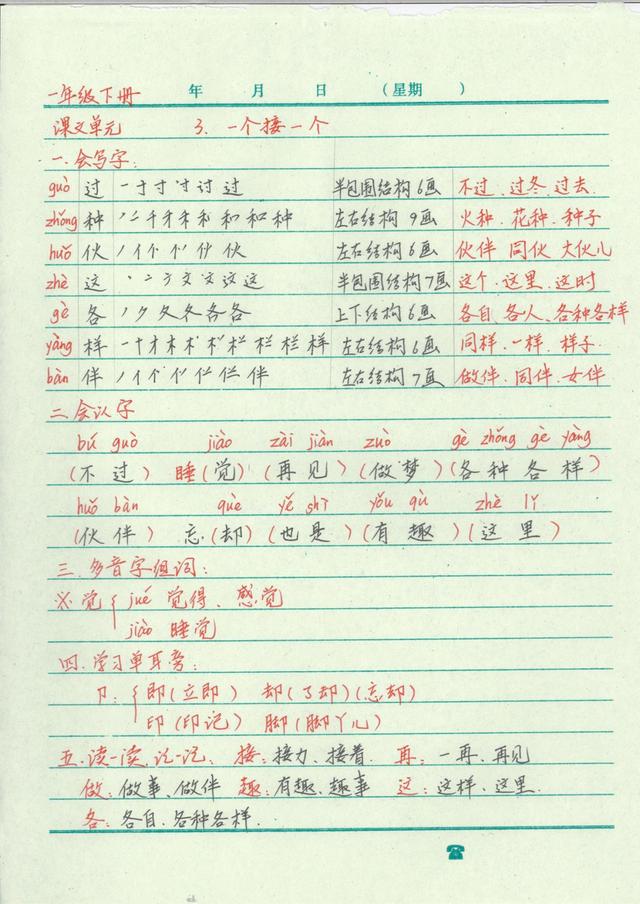 一年级下册 年 月 日 (星期 )
课文单元 3. 一个接一个
一.会写字:
guò 过 一寸寸讨过 半包围结构6画 不过.过冬.过去.
zhǒng 种 丿二千才禾禾和和种 左右结构9画 火种.花种.种子
huǒ 伙 丿亻伙 左右结构6画 伙伴 同伙 大伙儿
zhè 这 丶二文文这这 半包围结构7画 这个.这里.这时
gè 各 丿夕夂冬各各 上下结构6画 各自.各人.各种各样
yàng 样 一十才木样 左右结构6画 同样.一样.样子.
bàn 伴 丿亻伴 左右结构7画 做伴.同伴.女伴
二.会认字
bú guò jiào zài jiàn zuò gè zhǒng gè yàng
(不过) 睡(觉) (再见) (做梦) (各种各样)
huǒ bàn què yě shì yǒu qù zhè lǐ
(伙伴) 忘(却) (也是) (有趣) (这里)
三.多音字组词:
※觉{ jué 觉得、感觉
jiào 睡觉
四.学习单耳旁:
卩:{ 即(立即) 却(了却)(忘却)
印(印记) 脚(脚丫儿)
五.读一读,记一记: 接:接力、接着. 再:一再、再见
做:做事、做伴 趣:有趣、趣事 这:这样、这里.
各:各自、各种各样.